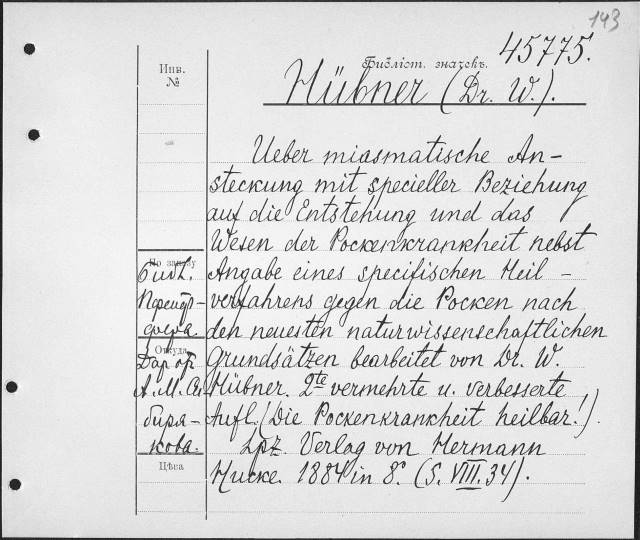 143
45775.
Инв.
№
Библіот. значекъ.
Hübner (Dr. W.).
Ueber miasmatische An-
steckung mit specieller Beziehung
auf die Entstehung und das
Wesen der Pockenkrankheit nebst
Angabe eines specifischen Heil-
verfahrens gegen die Pocken nach
den neuesten naturwissenschaftlichen
Grundsätzen bearbeitet von Dr. W.
Hübner. 2te vermehrte u. verbesserte
Aufl. (Die Pockenkrankheit heilbar!).
Lpz. Verlag von Hermann
Hucke. 1884 in 8°. (S. VIII. 34).
По заказу
Библ.
Откуда
Дар от
А. М. Си
биря-
кова.
Цѣна